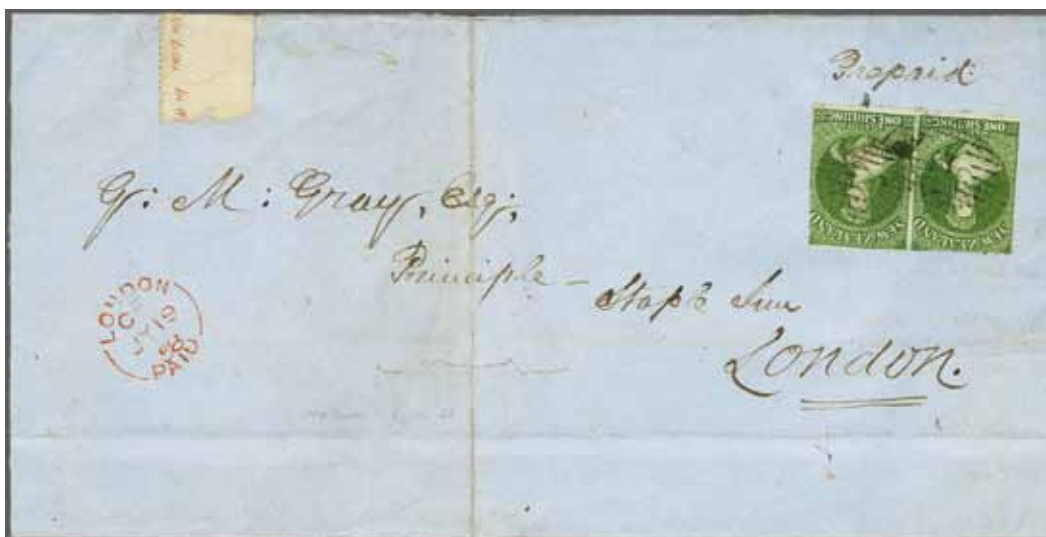 Prepaid
ONE SHILLING ONE SHILLING
NEW ZEALAND NEW ZEALAND
G: M: Gray, Esq;
Principle -
Staple Inn
London.
LONDON
C
JY 19
PAID